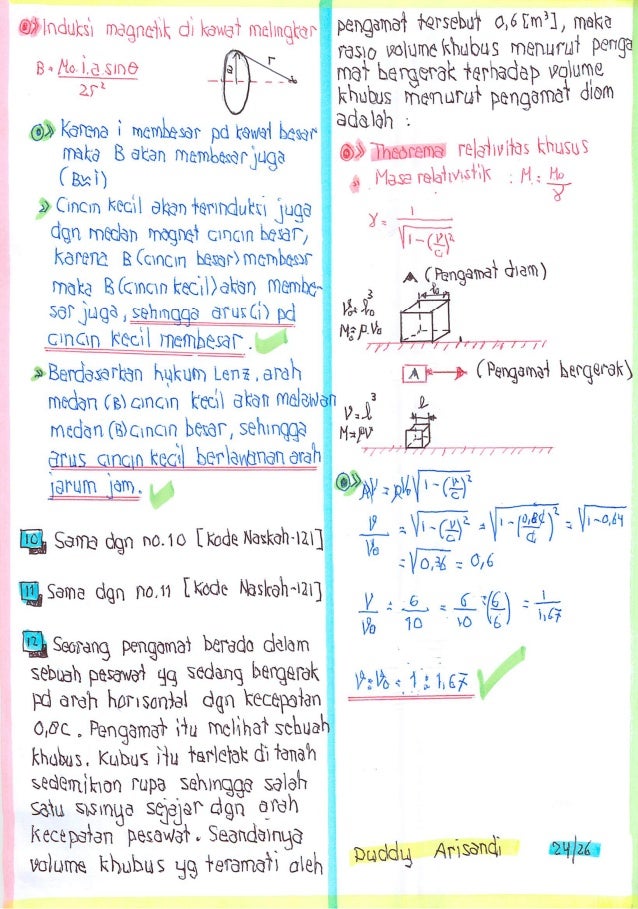 Induksi magnetik di kawat melingkar
B = Mo.i.a sinθ / 2r²
a r
Karena i membesar pd kawat besar
maka B akan membesar juga
(B∝i)
Cincin kecil akan terinduksi juga
dgn medan magnet cincin besar,
karena B (cincin besar) membesar
maka B (cincin kecil) akan membe-
sar juga, sehingga arus (i) pd
cincin kecil membesar.
Berdasarkan hukum Lenz, arah
medan (B) cincin kecil akan melawan
medan (B) cincin besar, sehingga
arus cincin kecil berlawanan arah
jarum jam.
10 Sama dgn no.10 [Kode Naskah-121]
11 Sama dgn no.11 [Kode Naskah-121]
12 Seorang pengamat berada dalam
sebuah pesawat yg sedang bergerak
pd arah horisontal dgn kecepatan
0,8C. Pengamat itu melihat sebuah
khubus. Kubus itu terletak di tanah
sedemikian rupa sehingga salah
satu sisinya sejajar dgn arah
kecepatan pesawat. Seandainya
volume khubus yg teramati oleh
pengamat tersebut 0,6 [m³], maka
rasio volume khubus menurut penga
mat bergerak terhadap volume
khubus menurut pengamat diam
adalah :
Theorema relativitas khusus
Masa relativistik : M = Mo/γ
γ = 1 / √1-(v/c)²
A (Pengamat diam)
lo
Vo = lo³
Mo = ρ.Vo
A (Pengamat bergerak)
l
V = l³
M = ρV
ρV = ρVo √1-(v/c)²
V/Vo = √1-(v/c)² = √1-(0,8c/c)² = √1-0,64
= √0,36 = 0,6
V/Vo = 6/10 = 6/10 : (6/6) = 1/1,67
V : Vo = 1 : 1,67
Duddy Arisandi 24/26